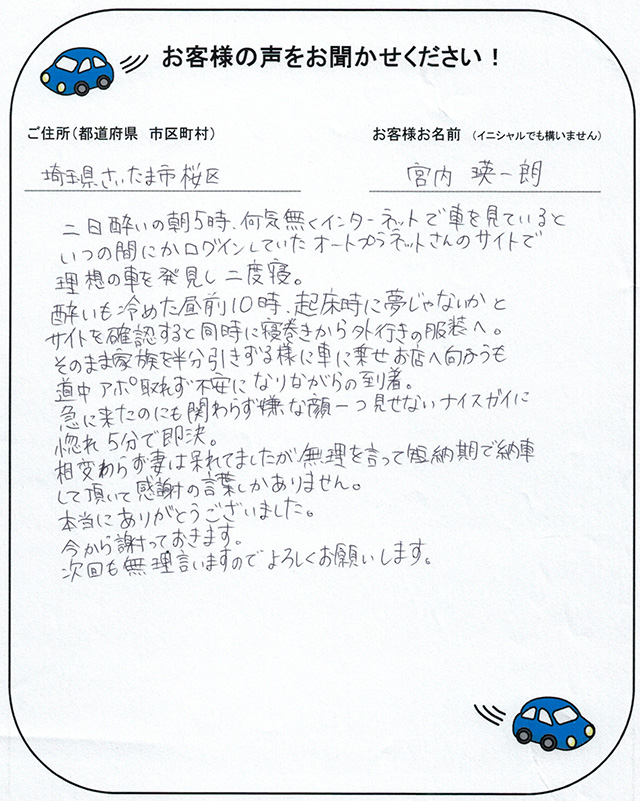 お客様の声をお聞かせください！
ご住所（都道府県　市区町村）
お客様お名前　（イニシャルでも構いません）
埼玉県さいたま市桜区
宮内　瑛一朗
二日酔いの朝5時、何気無くインターネットで車を見ていると
いつの間にかログインしていたオートプラネットさんのサイトで
理想の車を発見し二度寝。
酔いも冷めた昼前10時、起床時に夢じゃないかと
サイトを確認すると同時に寝巻きから外行きの服装へ。
そのまま家族を半分引きずる様に車に乗せお店へ向かうも
道中アポ取れず不安になりながらの到着。
急に来たのにも関わらず嫌な顔一つ見せないナイスガイに
惚れ5分で即決。
相変わらず妻は呆れてましたが無理を言って短納期で納車
して頂いて感謝の言葉しかありません。
本当にありがとうございました。
今から謝っておきます。
次回も無理言いますのでよろしくお願いします。